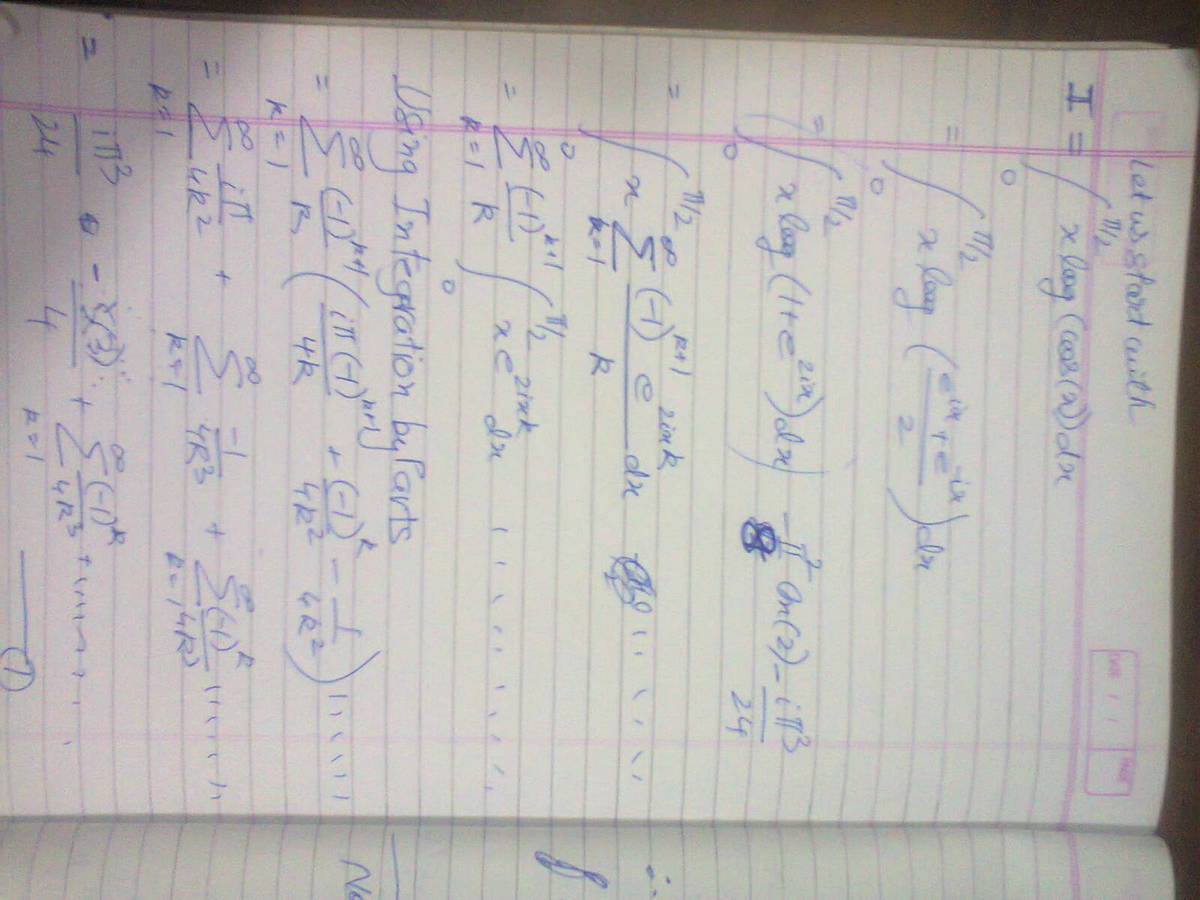 Let us start with
I = ∫₀^{π/2} x log(cos(x)) dx
= ∫₀^{π/2} x log((e^{ix} + e^{-ix})/2) dx
= (∫₀^{π/2} x log(1+e^{2ix}) dx) - π²/8 ln(2) - iπ³/24
= ∫₀^{π/2} x Σ_{k=1}^{∞} (-1)^{k+1} e^{2ixk}/k dx ......
= Σ_{k=1}^{∞} (-1)^{k+1}/k ∫₀^{π/2} x e^{2ixk} dx ........
Using Integration by Parts
= Σ_{k=1}^{∞} (-1)^{k+1}/k (iπ(-1)^{k+1}/4k + (-1)^k/4k² - 1/4k²) ......
= Σ_{k=1}^{∞} iπ/4k² + Σ_{k=1}^{∞} -1/4k³ + Σ_{k=1}^{∞} (-1)^k/4k³ ......
= iπ³/24 - ζ(3)/4 + Σ_{k=1}^{∞} (-1)^k/4k³ + ........
—— ①
∴